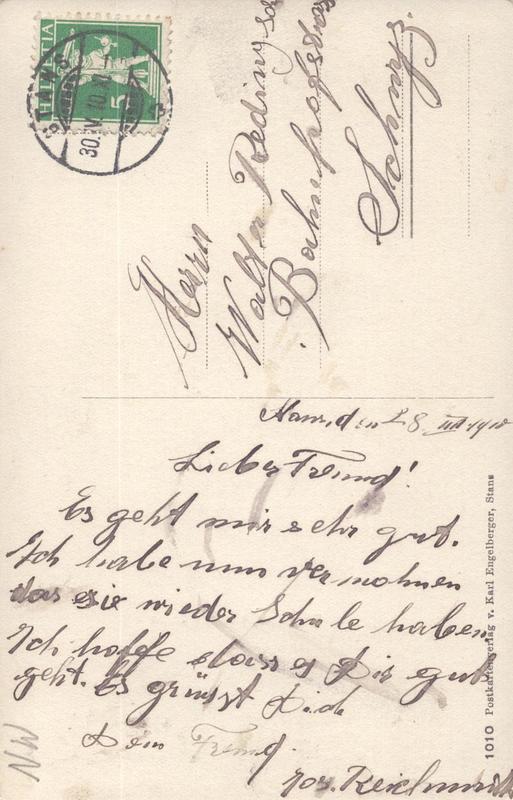 HELVETIA
5
30.IV.10.XI
Herrn
Walter Reding
Bahnhofstr
Schwyz.
den 28. 1910
Lieber Freund!
Es geht mir sehr gut.
Ich habe nun vernohmen
das sie wieder Schule haben
Ich hoffe dass es Dir gut
geht. Es grüsst Dich
Dein Freund.
Jos.
1010 Postkartenverlag v. Karl Engelberger, Stans
NW